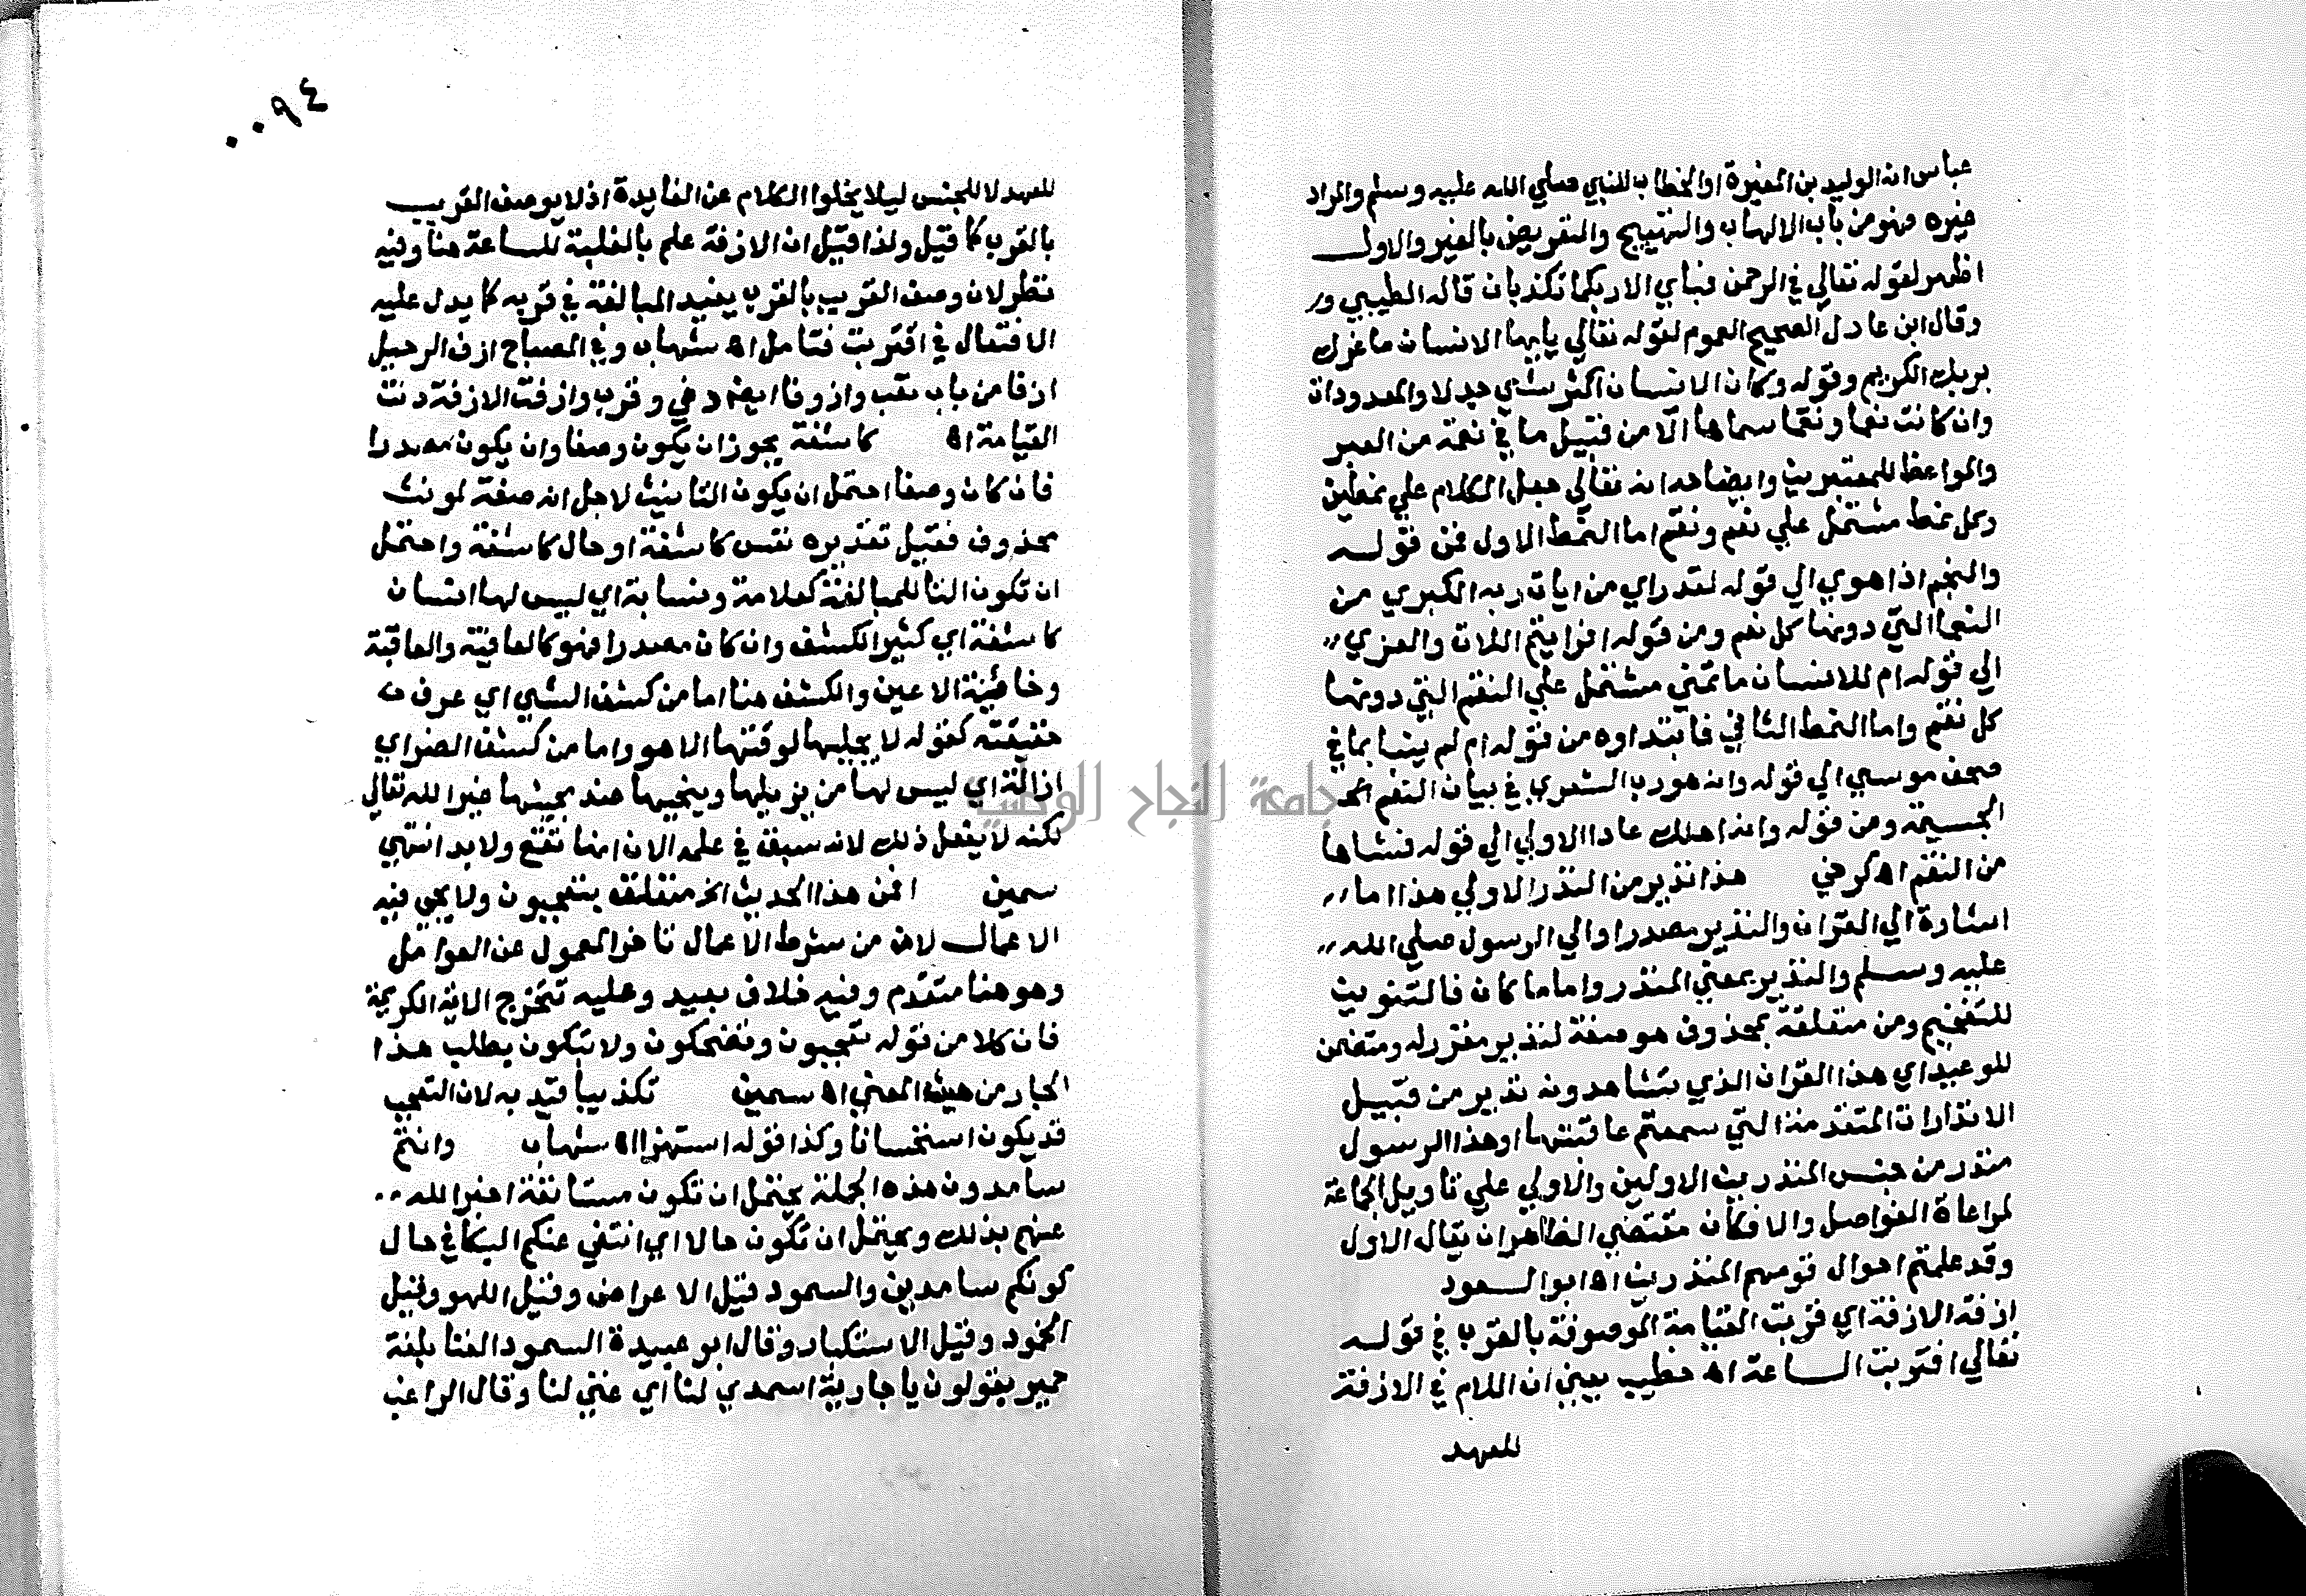 عباس انه الوليد بن المغيرة او الخطاب للنبي صلي الله عليه وسلم والمراد
غيره فهو من باب الالهاب والتهييج والتعريض بالغير والاول
اظهر لقوله تعالي في الرحمن فباي الا ربكما تكذبان قاله الطيبي و
وقال ابن عادل الصحيح العموم لقوله تعالي يايها الانسان ما غرك
بربك الكريم وقوله وكان الانسان اكثر شي جدلا والمعدودات
وان كانت نعما ونقما سماها الآ من قبيل ما في نعمه من العبر
والمواعظ للمعتبرين وايضا فهو انه تعالي جعل الكلام علي نمطين
وكل نمط مشتمل علي نعم ونقم اما النمط الاول فمن قوله
والنجم اذا هوي الي قوله لقد راي من ايات ربه الكبري من
النعما التي دونها كل نعم ومن قوله افرايتم اللات والعزي
الي قوله ام للانسان ما تمني مشتمل علي النقم التي دونها
كل نقم واما النمط الثاني فابتداوه من قوله ام لم ينبا بما في
صحف موسي الي قوله وانه هو رب الشعري في بيان النعم
الجسيمة ومن قوله وانه اهلك عادا الاولي الي قوله فغشاها
من النقم اه كرخي هذا نذير من النذر الاولي هذا اما
اشارة الي القران والنذير مصدر او الي الرسول صلي الله
عليه وسلم والنذير بمعني المنذر واما ما كان فالتنوين
للتفخيم ومن متعلقة بمحذوف هو صفة لنذير مقرر له ومتضمن
للوعيد اي هذا القران الذي تشاهدونه نذير من قبيل
الانذارات المتقدمة التي سمعتم عاقبتها او هذا الرسول
منذر من جنس المنذرين الاولين والاولي علي تاويل الجماعة
لمراعاة الفواصل والا فكان مقتضي الظاهر ان يقال الاول
وقد علمتم احوال قومهم المنذرين اه ابو السعود
ازفت الازفة اي قربت القيامة الموصوفة بالقرب في قوله
تعالي اقتربت الساعة اه خطيب يعني ان اللام في الازفة
للعهد
٠٠٩٤
للعهد لا للجنس ليلا يخلوا الكلام عن الفايدة اذ لا يوصف القريب
بالقرب كما قيل ولذا قيل ان الازفة علم بالغلبة للساعة هنا وفيه
نظر لان وصف القريب بالقرب يفيد المبالغة في قربه كما يدل عليه
الافتعال في اقتربت فتامل اه شهاب وفي المصباح ازف الرحيل
ازفا من باب تعب وازوفا ايضا دني وقرب وازفت الازفة دنت
القيامة اه كاشفة يجوز ان يكون وصفا وان يكون مصدرا
فان كان وصفا احتمل ان يكون التانيث لاجل انه صفة لمونث
محذوف فقيل تقديره نفس كاشفة او حال كاشفة واحتمل
ان تكون التا للمبالغة كعلامة ونسابة اي ليس لها انسان
كاشفة اي كثير الكشف وان كان مصدرا فهو كالعافية والعاقبة
وخائنة الاعين والكشف هنا اما من كشف الشي اي عرف
حقيقته كقوله لا يجليها لوقتها الا هو واما من كشف الضر اي
ازالة اي ليس لها من يزيلها وينحيها عند مجيئها غير الله تعالي
لكنه لا يفعل ذلك لانه سبق في علمه الان انها تقع ولا بد انتهي
سمين افمن هذا الحديث الخ متعلق بتعجبون ولا يجي فيه
الاعمال لان من شرط الاعمال تاخر المعمول عن العوامل
وهو هنا متقدم وفيه خلاف بعيد وعليه تتخرج الاية الكريمة
فان كلا من قوله تعجبون وتضحكون ولا تبكون يطلب هذا
الجار من حيث المعني اه سمين تكذيبا قيد به لان التعجب
قد يكون استحسانا وكذا قوله استهزا اه شهاب وانتم
سامدون هذه الجملة يحتمل ان تكون مستانفة اخبر الله
عنهم بذلك ويحتمل ان تكون حالا اي انتفي عنكم البكا في حال
كونكم سامدين والسمود قيل الاعراض وقيل اللهو وقيل
الخمود وقيل الاستكبار وقال ابو عبيدة السمود الغنا بلغة
حمير يقولون يا جارية اسمدي لنا اي غني لنا وقال الراغب
جامعة النجاح الوطنية